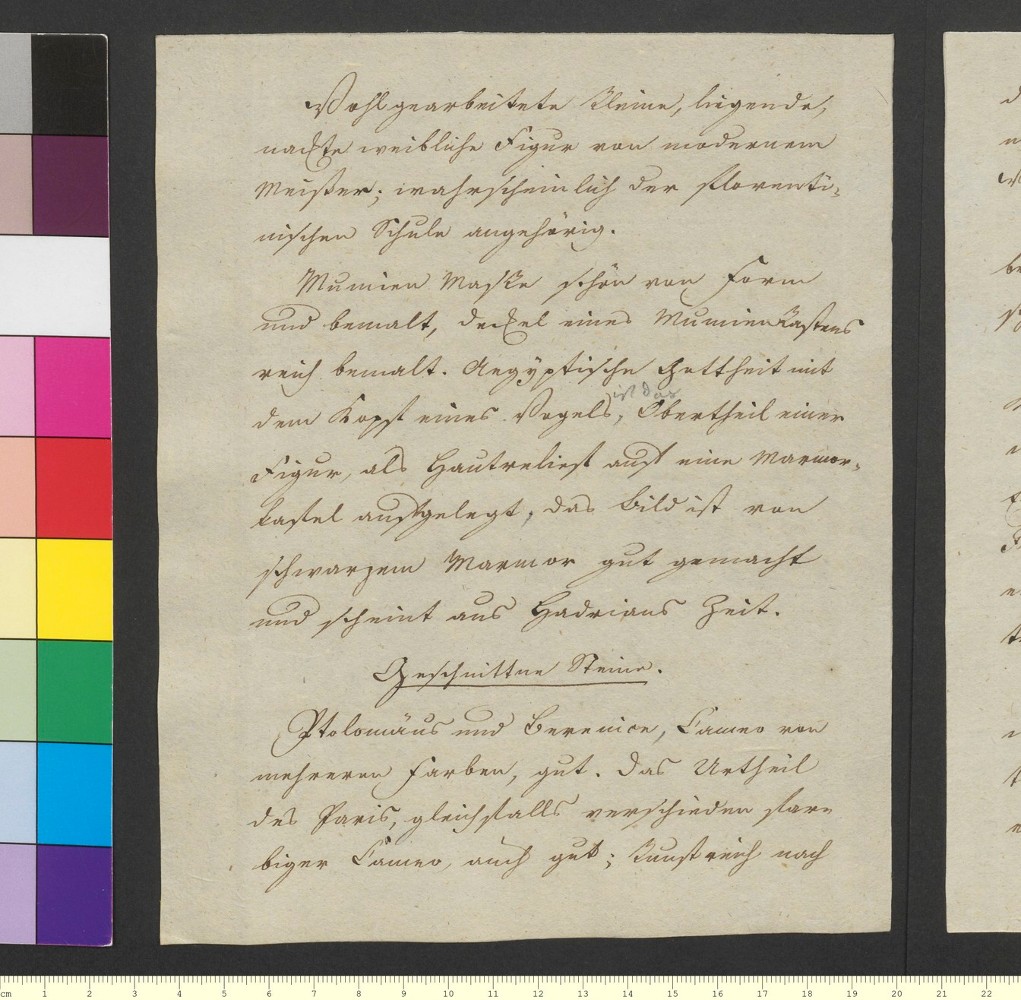 Wohl gearbeitete kleine, liegende,
nackte weibliche Figur von modernem
Meister; wahrscheinlich der florenti-
nischen Schule angehörig.
Mumien Maske schön von Form
und bemalt, deckel eines Mumienkastens
reich bemalt. Aegyptische Gottheit mit
ist das
dem Kopf eines Vogels, Obertheil einer
Figur, als Hautrelief auf eine Marmor-
tafel aufgelegt, das Bild ist von
schwarzem Marmor gut gemacht
und scheint aus Hadrians Zeit.
Geschnittne Steine.
Ptolomäus und Berenice, Cameo von
mehreren Farben, gut. Das Urtheil
des Paris, gleichfalls verschieden far-
biger Cameo, auch gut; kunstreich nach
cm 1 2 3 4 5 6 7 8 9 10 11 12 13 14 15 16 17 18 19 20 21 22